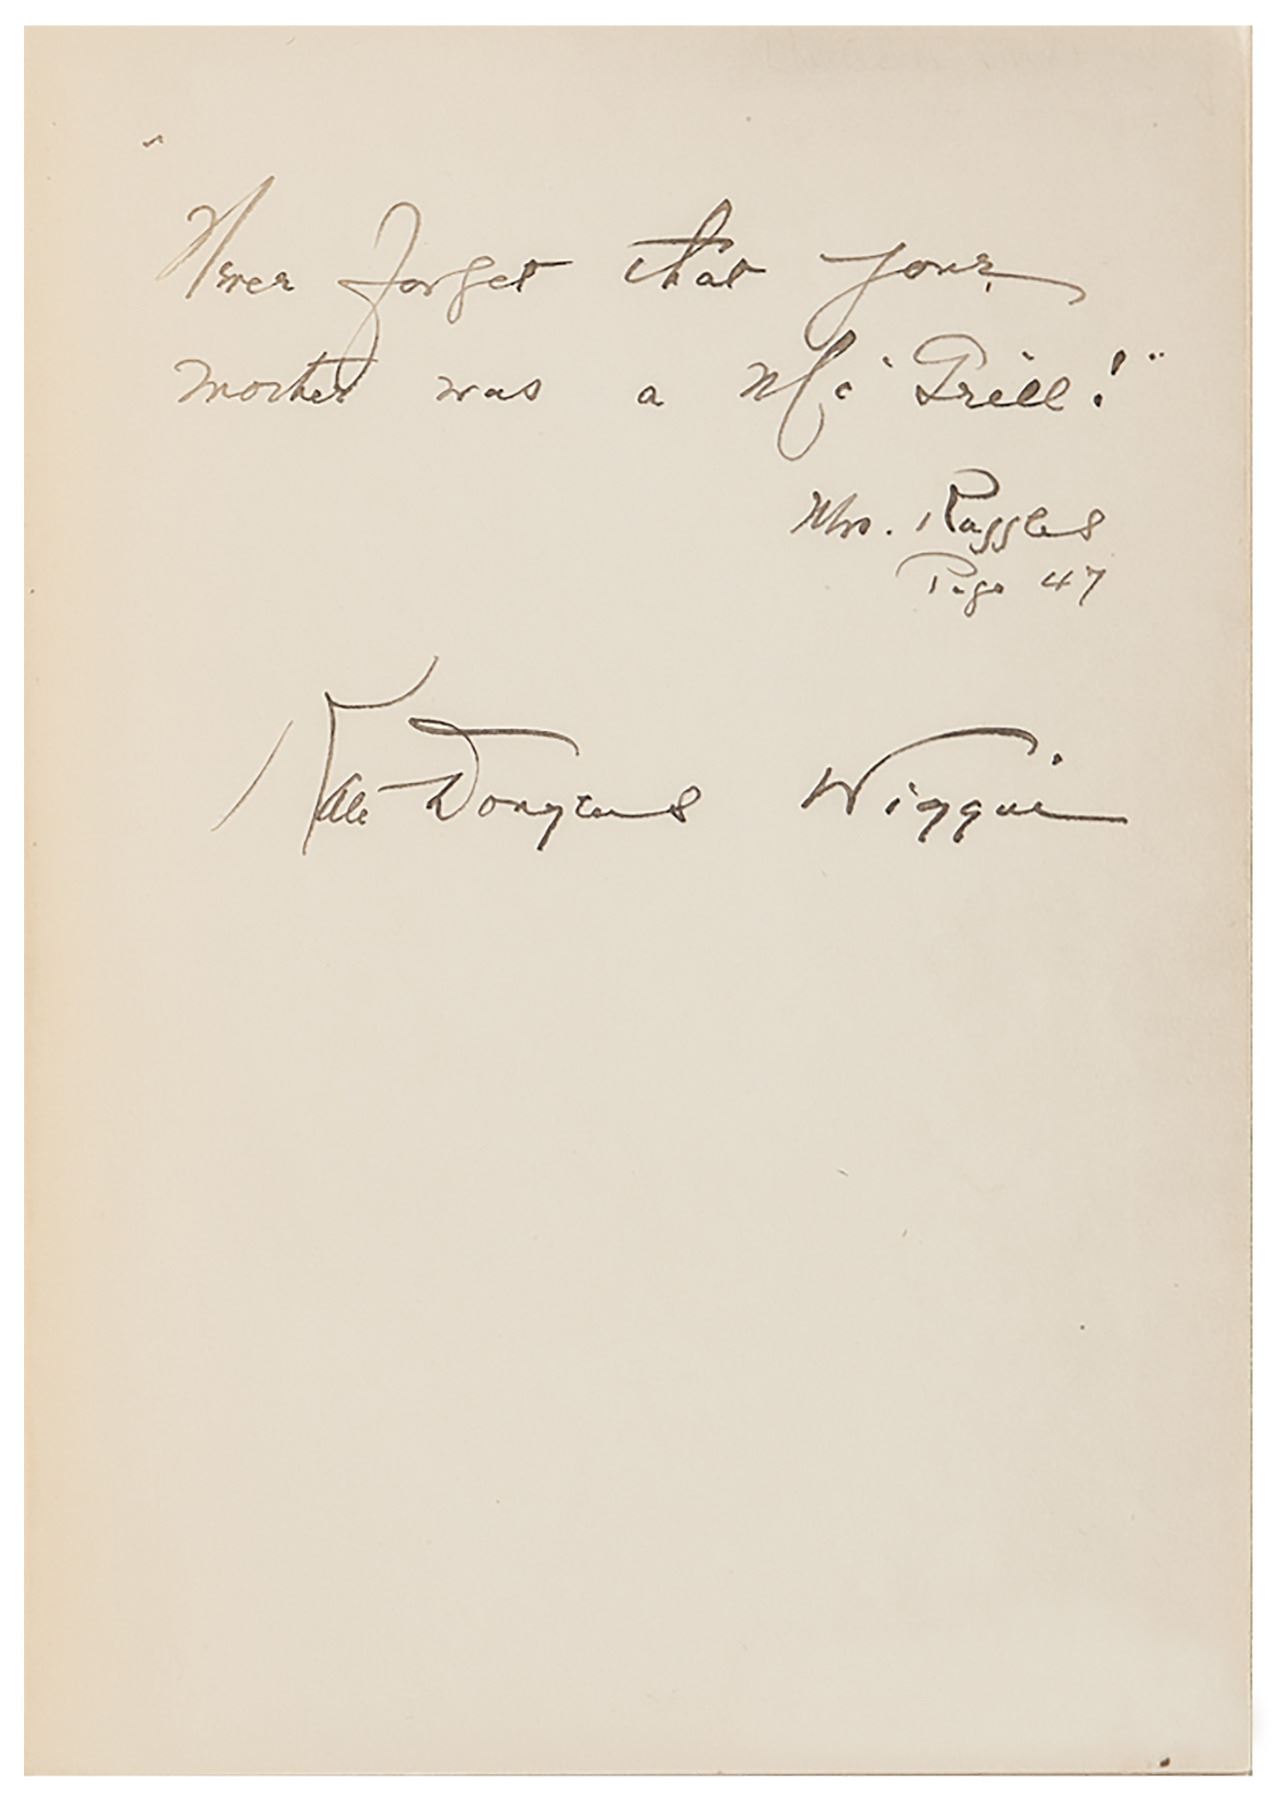 "Never forget that your
mother was a Mc Grill!"
Mrs. Ruggles
Page 47
Kate Douglas Wiggin